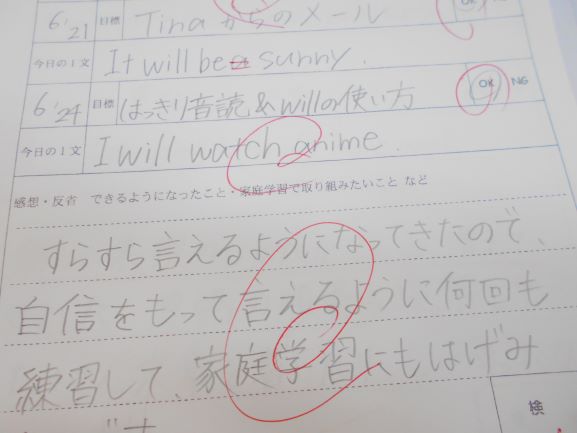 6/21 目標 Tinaからのメール OK
今日の1文 It will be sunny.
6/24 目標 はっきり音読&willの使い方 OK NG
今日の1文 I will watch anime.
感想・反省 できるようになったこと・家庭学習で取り組みたいこと など
すらすら言えるようになってきたので、
自信をもって言えるように何回も
練習して、家庭学習にもはげみ
検